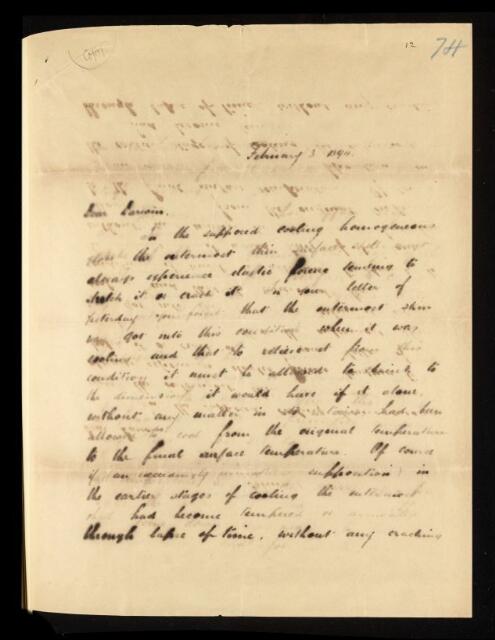 12
74
February 3 1894.
Dear Darwin.
In the supposed cooling homogeneous
the outermost thin
always experience elastic forces tending to
stretch it or crush it. In your letter of
yesterday that the outermost skin
got into this condition when it was
cooling and that to rediscount from this
condition it must be allowed to shrink to
the dimensions it would have if it alone,
without any matter in its interior had been
allowed to cool from the original temperature
to the final surface temperature. Of course
if (an supposition) in
the earlier stages of cooling the outermost
had become tempered or
through lapse of time, without any cracking